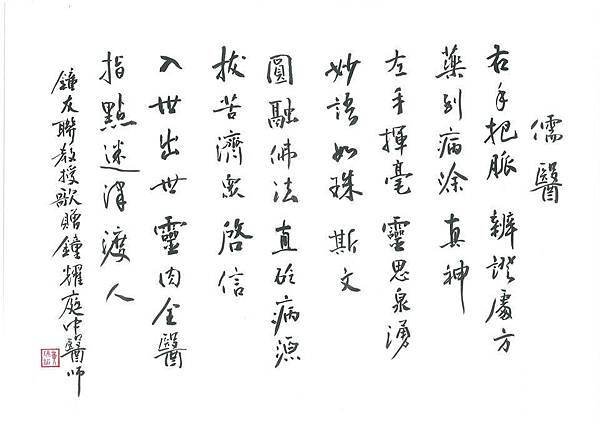 儒醫
右手把脈 辨證處方
藥到病除真神
左手揮毫 靈思泉湧
妙語如珠 斯文
圓融佛法 直砭病源
拔苦濟眾啓信
入世出世靈肉全醫
指點迷津渡人
鐘友聯教授歌贈鐘耀庭中醫師